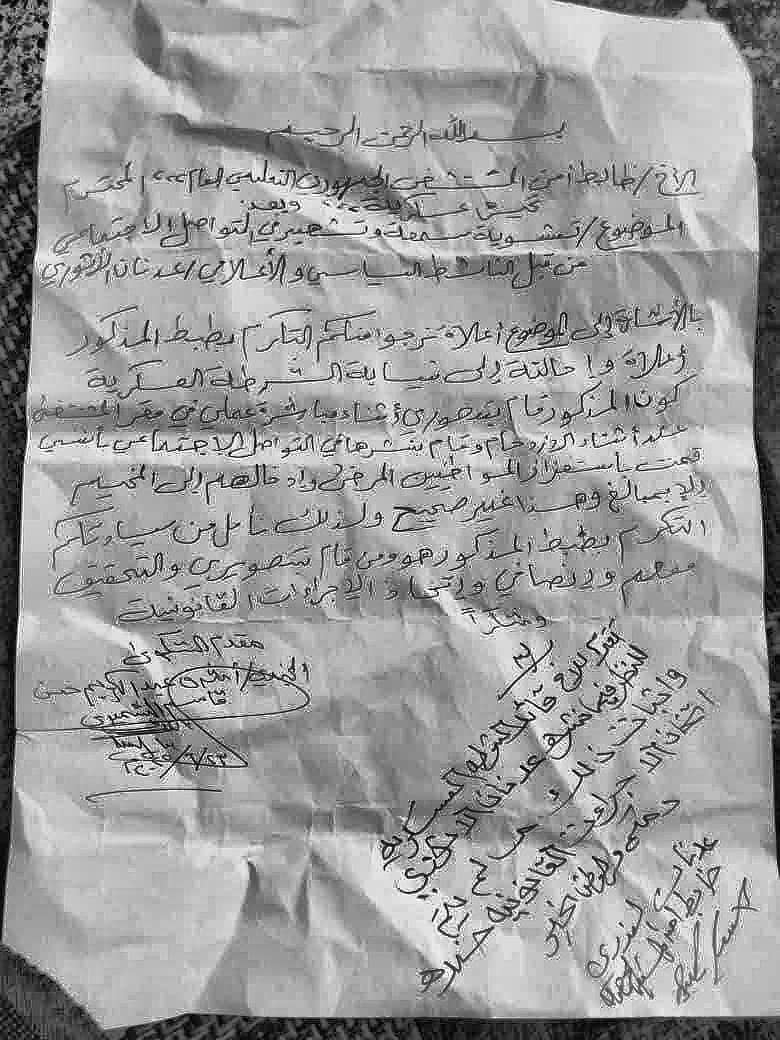 بسم الله الرحمن الرحيم
الأخ / ضابط أمن المستشفى الجمهوري التعليمي العام المحترم
تحية عسكرية ... وبعد
الموضوع / تشوية سمعة وتشهير في التواصل الاجتماعي
من قبل الناشط السياسي والأعلامي / عدنان الأثوري
بالأشارة إلى الموضوع أعلاة نرجوا منكم التكرم بظبط المذكور
أعلاة واحالتة إلى نيابة الشرطة العسكرية
كون المذكور قام بتصوري أثناء مباشرة عملي في مقر المستشفى
عند أشتداد الأزدحام وقام بنشرها في التواصل الاجتماعي بأنني
قمت بأستفزاز المواطنين المرضى وادخالهم إلى المخيم
بمبالغ وهذا غير صحيح ولذلك نأمل من سيادتكم
التكرم بظبط المذكور هو ومن قام بتصويري والتحقيق
معهم وإنصافي وإتخاذ الإجراءات القانونية
وشكراً
مقدم الشكوى
الجندي / أشرف عبدالكريم حسن
قاسم
الأخ قائد الشرطة العسكرية
للنظر فيما نشره عدنان الأثوري
واثبات ذلك مالم يتم
اتخاذ الاجراءات القانونية ضده
ضابط أمن